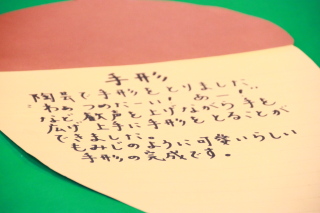 手形
陶芸で手形をとりました。
わぁ つめたーい! あー!!
など 歓声を上げながら 手を
広げ 上手に手形をとることが
できました。
もみじのように可愛いらしい
手形の完成です。